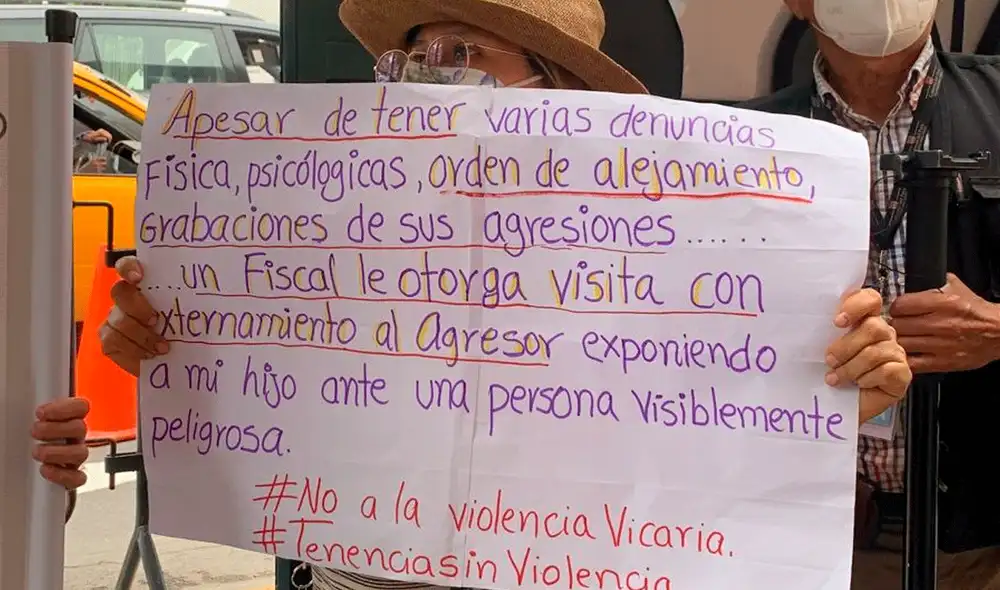 Apesar de tener varias denuncias
Física, psicólógicas, orden de alejamiento,
Grabaciones de sus agresiones......
....un Fiscal le otorga visita con
externamiento al Agresor exponiendo
a mi hijo ante una persona visiblemente
peligrosa.
#No a la violencia Vicaria.
#Tenencia sin Violencia